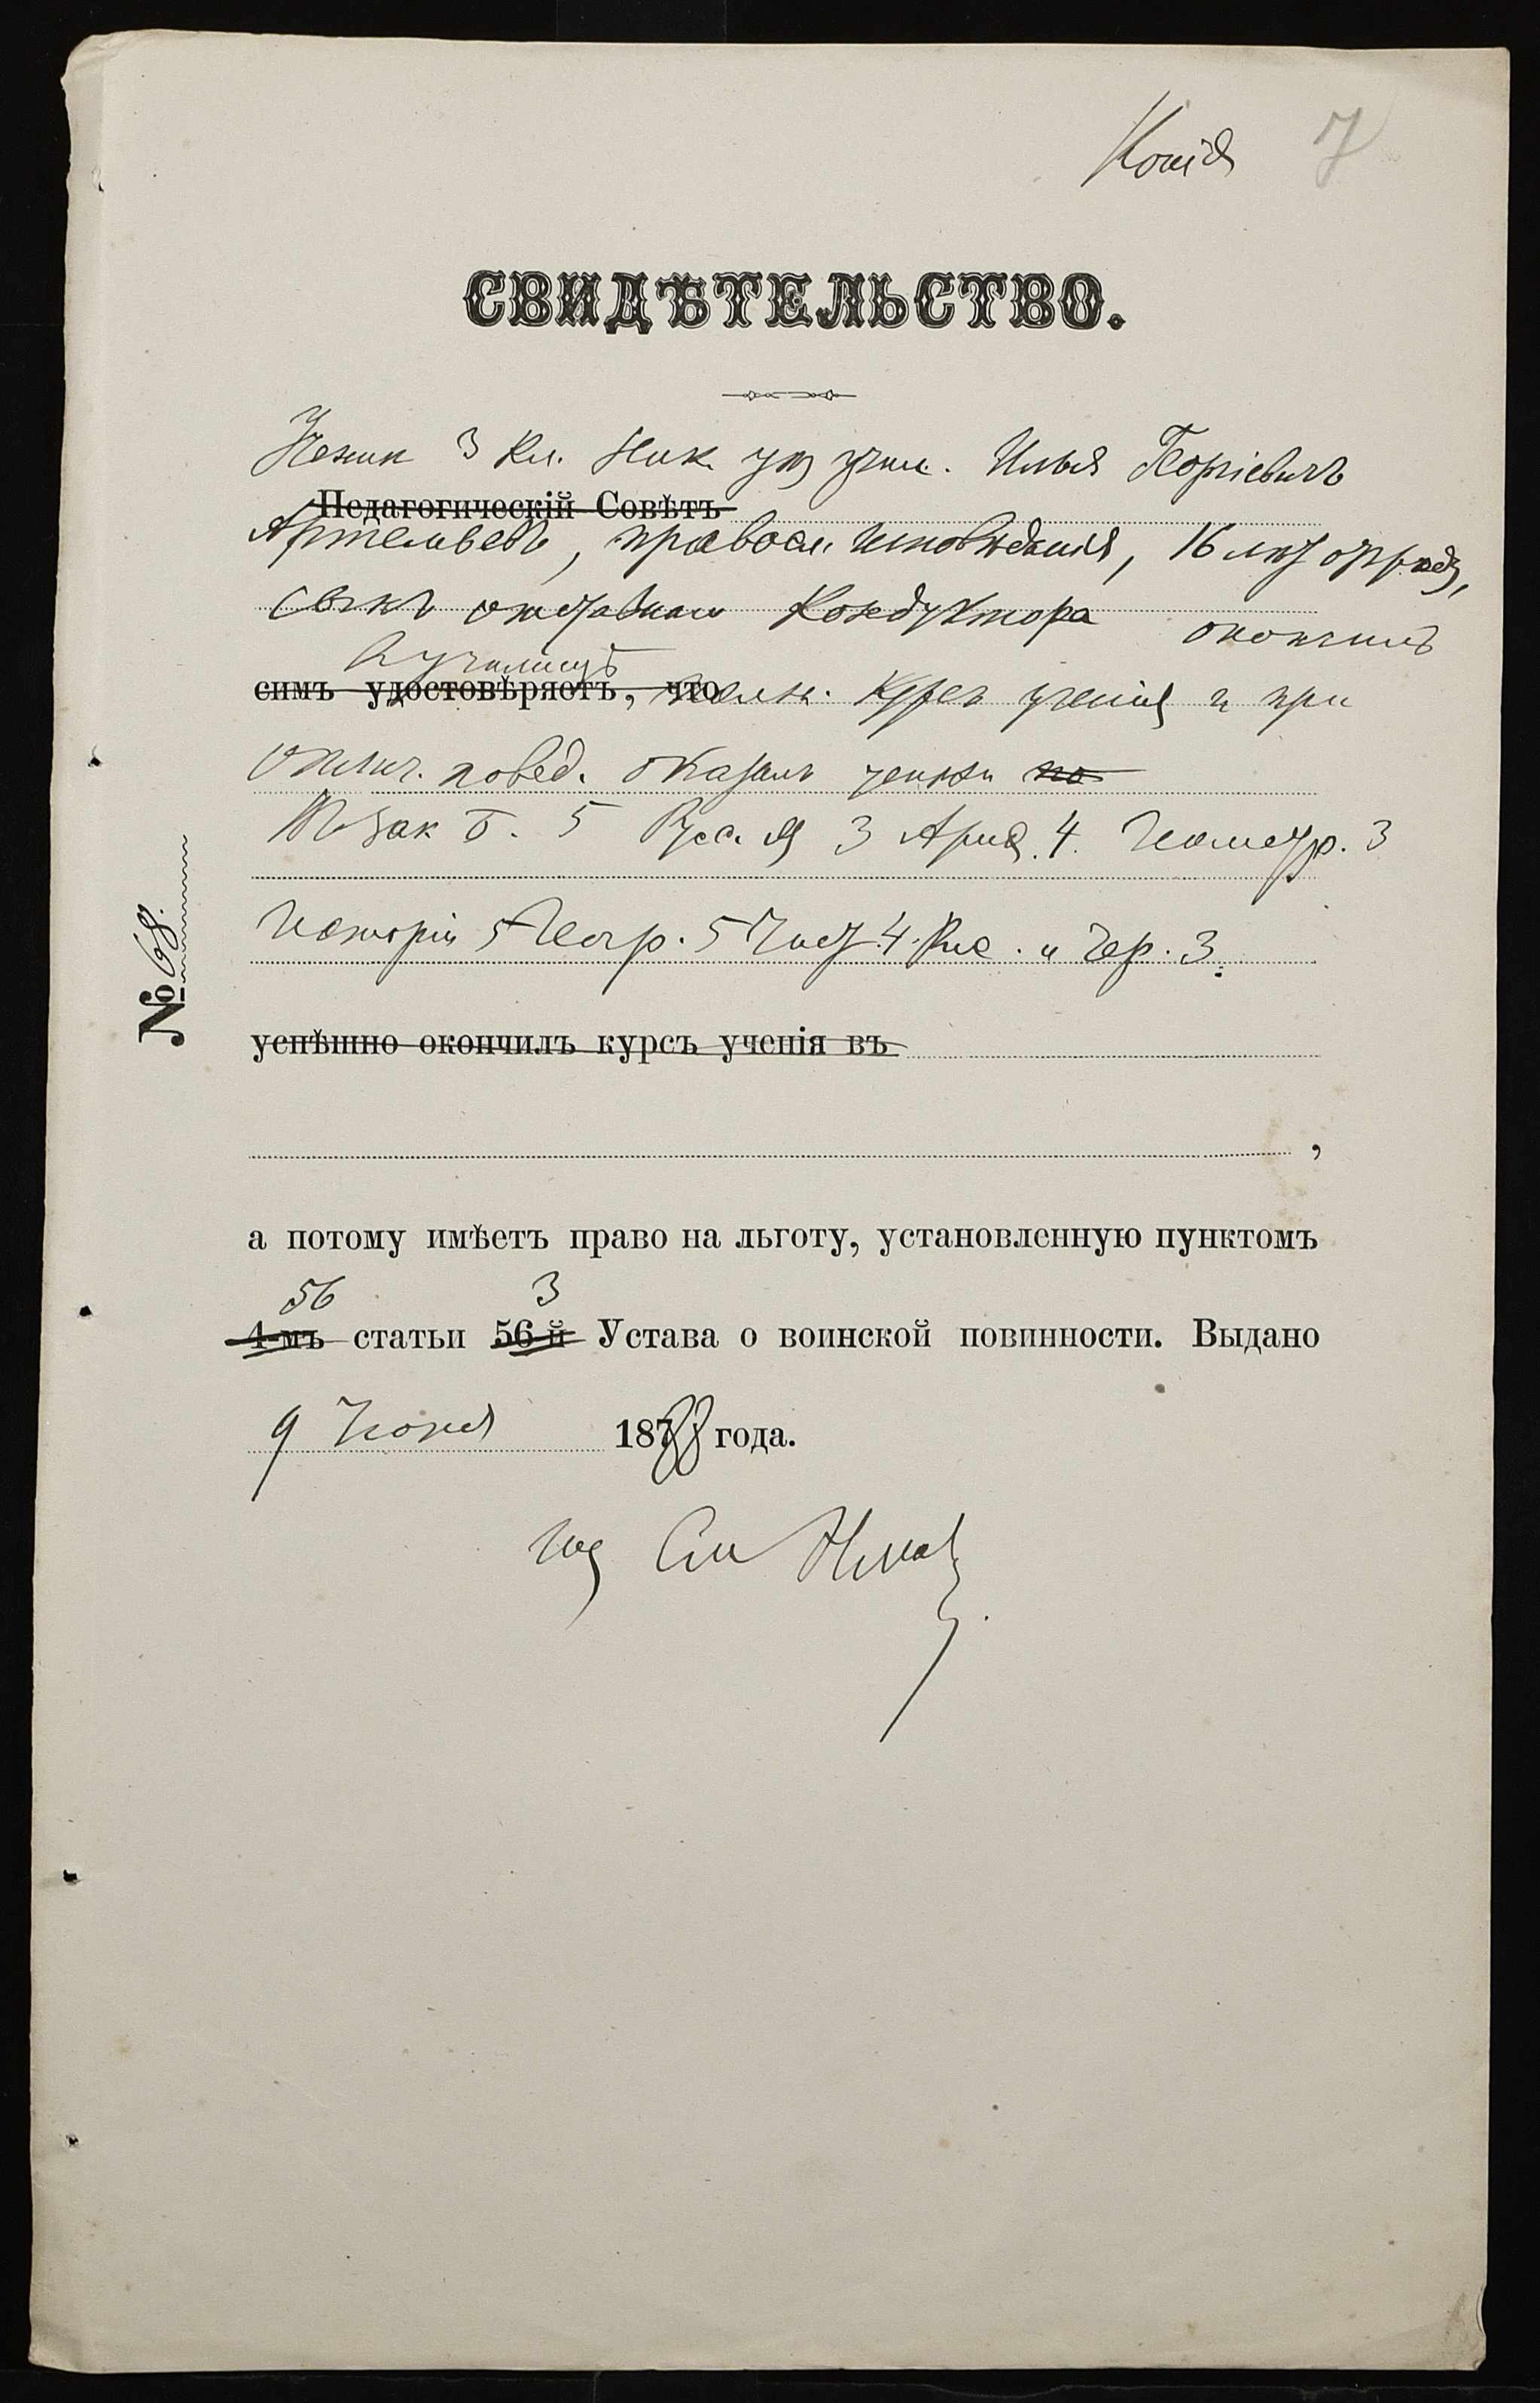 Копія 7
СВИДѢТЕЛЬСТВО.
Ученик 3 кл. Ник. уѣз учил. Илья Георгіевичъ
Педагогическій Совѣтъ
Артемьевъ, правосл. исповѣданія, 16 лѣт отъ роду,
сынъ отставнаго Кондуктора окончилъ
въ училищѣ
симъ удостовѣряетъ, что полн. курсъ ученія и при
отличн. повед. оказалъ успѣхи по
Зак Б. 5 Русс. яз 3 Ариѳ. 4. Геометр. 3
Исторіи 5 Геогр. 5 Чист. 4. Рис. и Чер. 3.
№ 68.
успѣшно окончилъ курсъ ученія въ
,
а потому имѣетъ право на льготу, установленную пунктомъ
56 3
4-мъ статьи 56-й Устава о воинской повинности. Выдано
9 Іюня 1888 года.